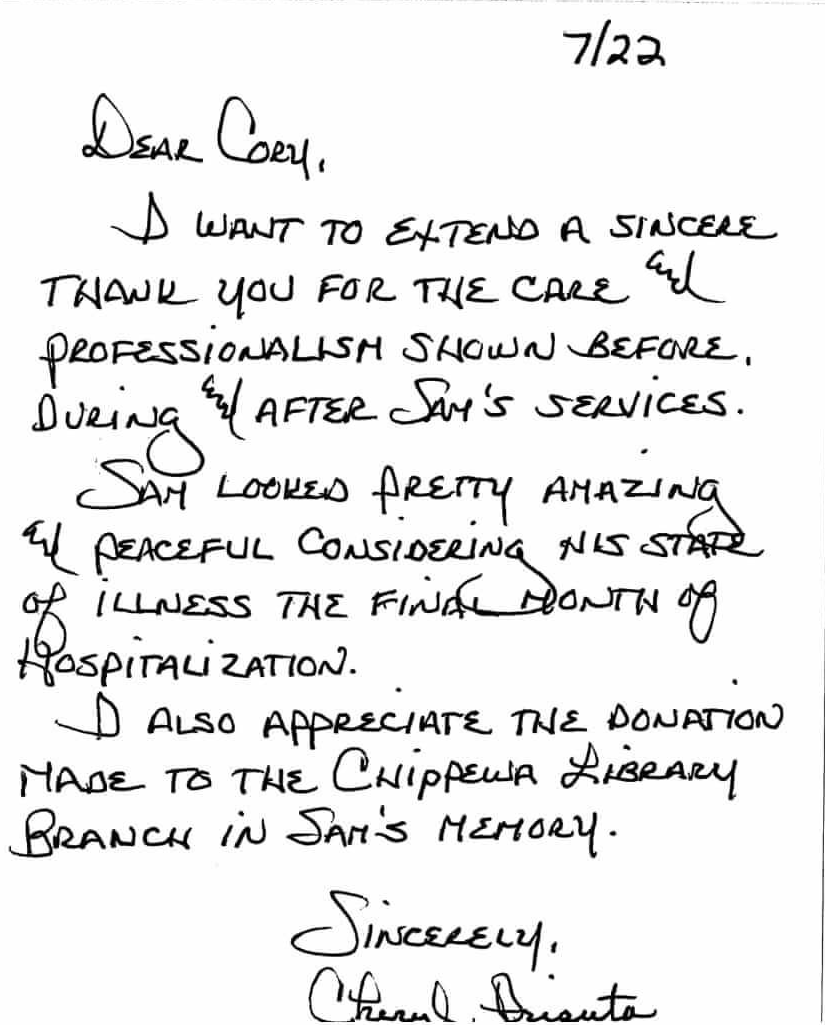 7/22
Dear Cory,
I want to extend a sincere
thank you for the care and
professionalism shown before,
during and after Sam's services.
Sam looked pretty amazing
and peaceful considering his state
of illness the final month of
hospitalization.
I also appreciate the donation
made to the Chippewa Library
Branch in Sam's memory.
Sincerely,
Cheryl